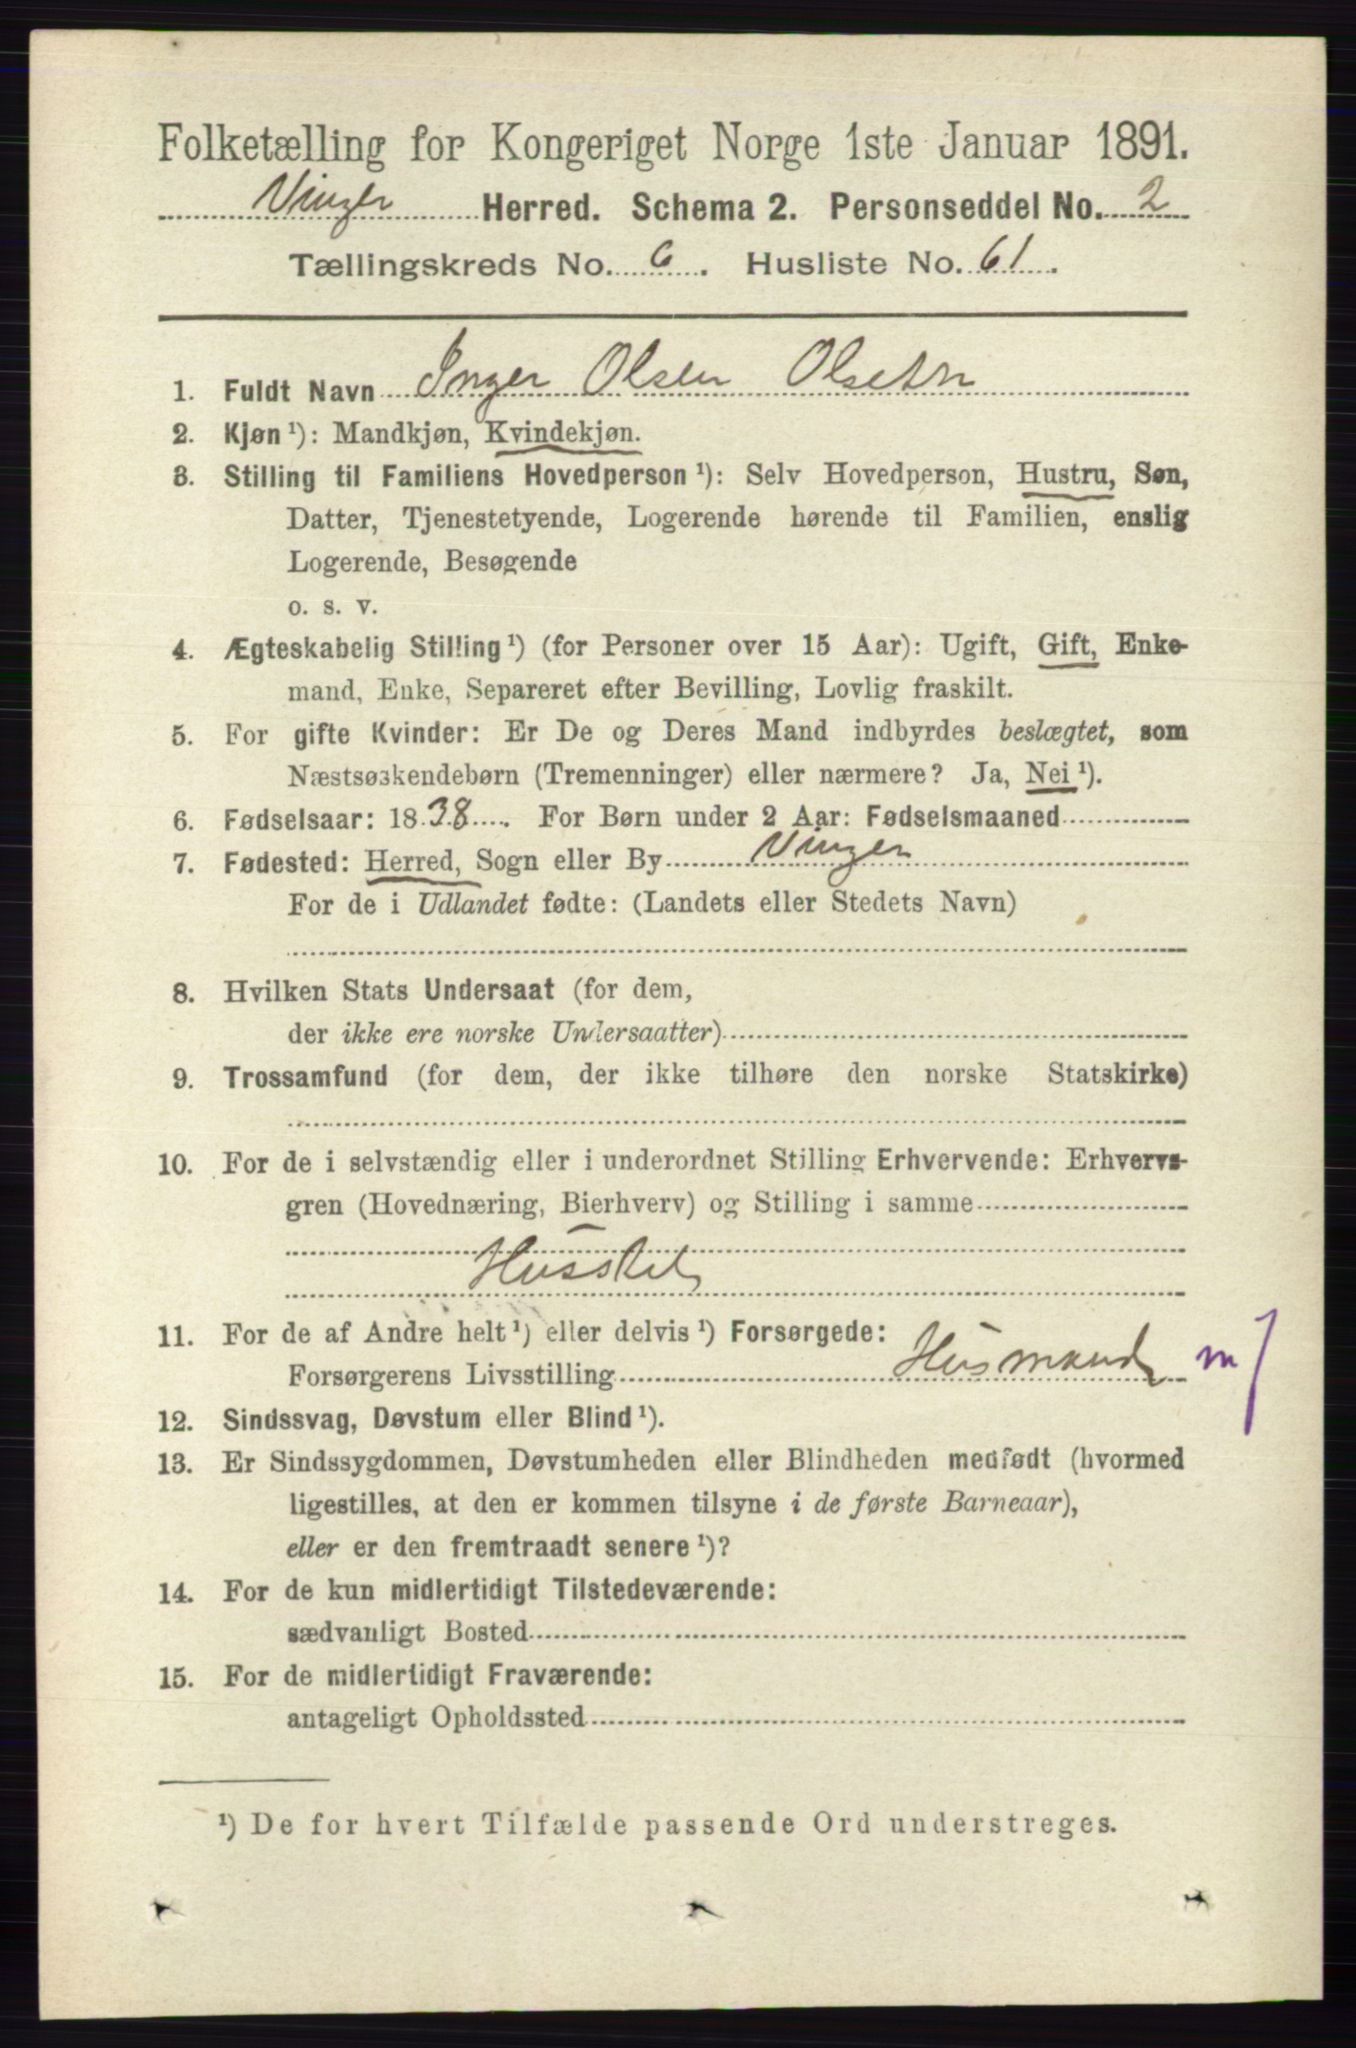 Folketælling for Kongeriget Norge 1ste Januar 1891.
Vinger Herred. Schema 2. Personseddel No. 2
Tællingskreds No. 6. Husliste No. 61.
1. Fuldt Navn Inger Olsen
2. Kjøn¹): Mandkjøn, Kvindekjøn.
3. Stilling til Familiens Hovedperson¹): Selv Hovedperson, Hustru, Søn,
Datter, Tjenestetyende, Logerende hørende til Familien, enslig
Logerende, Besøgende
o. s. v.
4. Ægteskabelig Stilling¹) (for Personer over 15 Aar): Ugift, Gift, Enke-
mand, Enke, Separeret efter Bevilling, Lovlig fraskilt.
5. For gifte Kvinder: Er De og Deres Mand indbyrdes beslægtet, som
Næstsøskendebørn (Tremenninger) eller nærmere? Ja, Nei¹).
6. Fødselsaar: 1838. For Børn under 2 Aar: Fødselsmaaned
7. Fødested: Herred, Sogn eller By Vinger
For de i Udlandet fødte: (Landets eller Stedets Navn)
8. Hvilken Stats Undersaat (for dem,
der ikke ere norske Undersaatter)
9. Trossamfund (for dem, der ikke tilhøre den norske Statskirke)
10. For de i selvstændig eller i underordnet Stilling Erhvervende: Erhvervs-
gren (Hovednæring, Bierhverv) og Stilling i samme
Husstel
11. For de af Andre helt¹) eller delvis¹) Forsørgede:
Forsørgerens Livsstilling Husmand m
12. Sindssvag, Døvstum eller Blind¹).
13. Er Sindssygdommen, Døvstumheden eller Blindheden medfødt (hvormed
ligestilles, at den er kommen tilsyne i de første Barneaar),
eller er den fremtraadt senere¹)?
14. For de kun midlertidigt Tilstedeværende:
sædvanligt Bosted
15. For de midlertidigt Fraværende:
antageligt Opholdssted
¹) De for hvert Tilfælde passende Ord understreges.